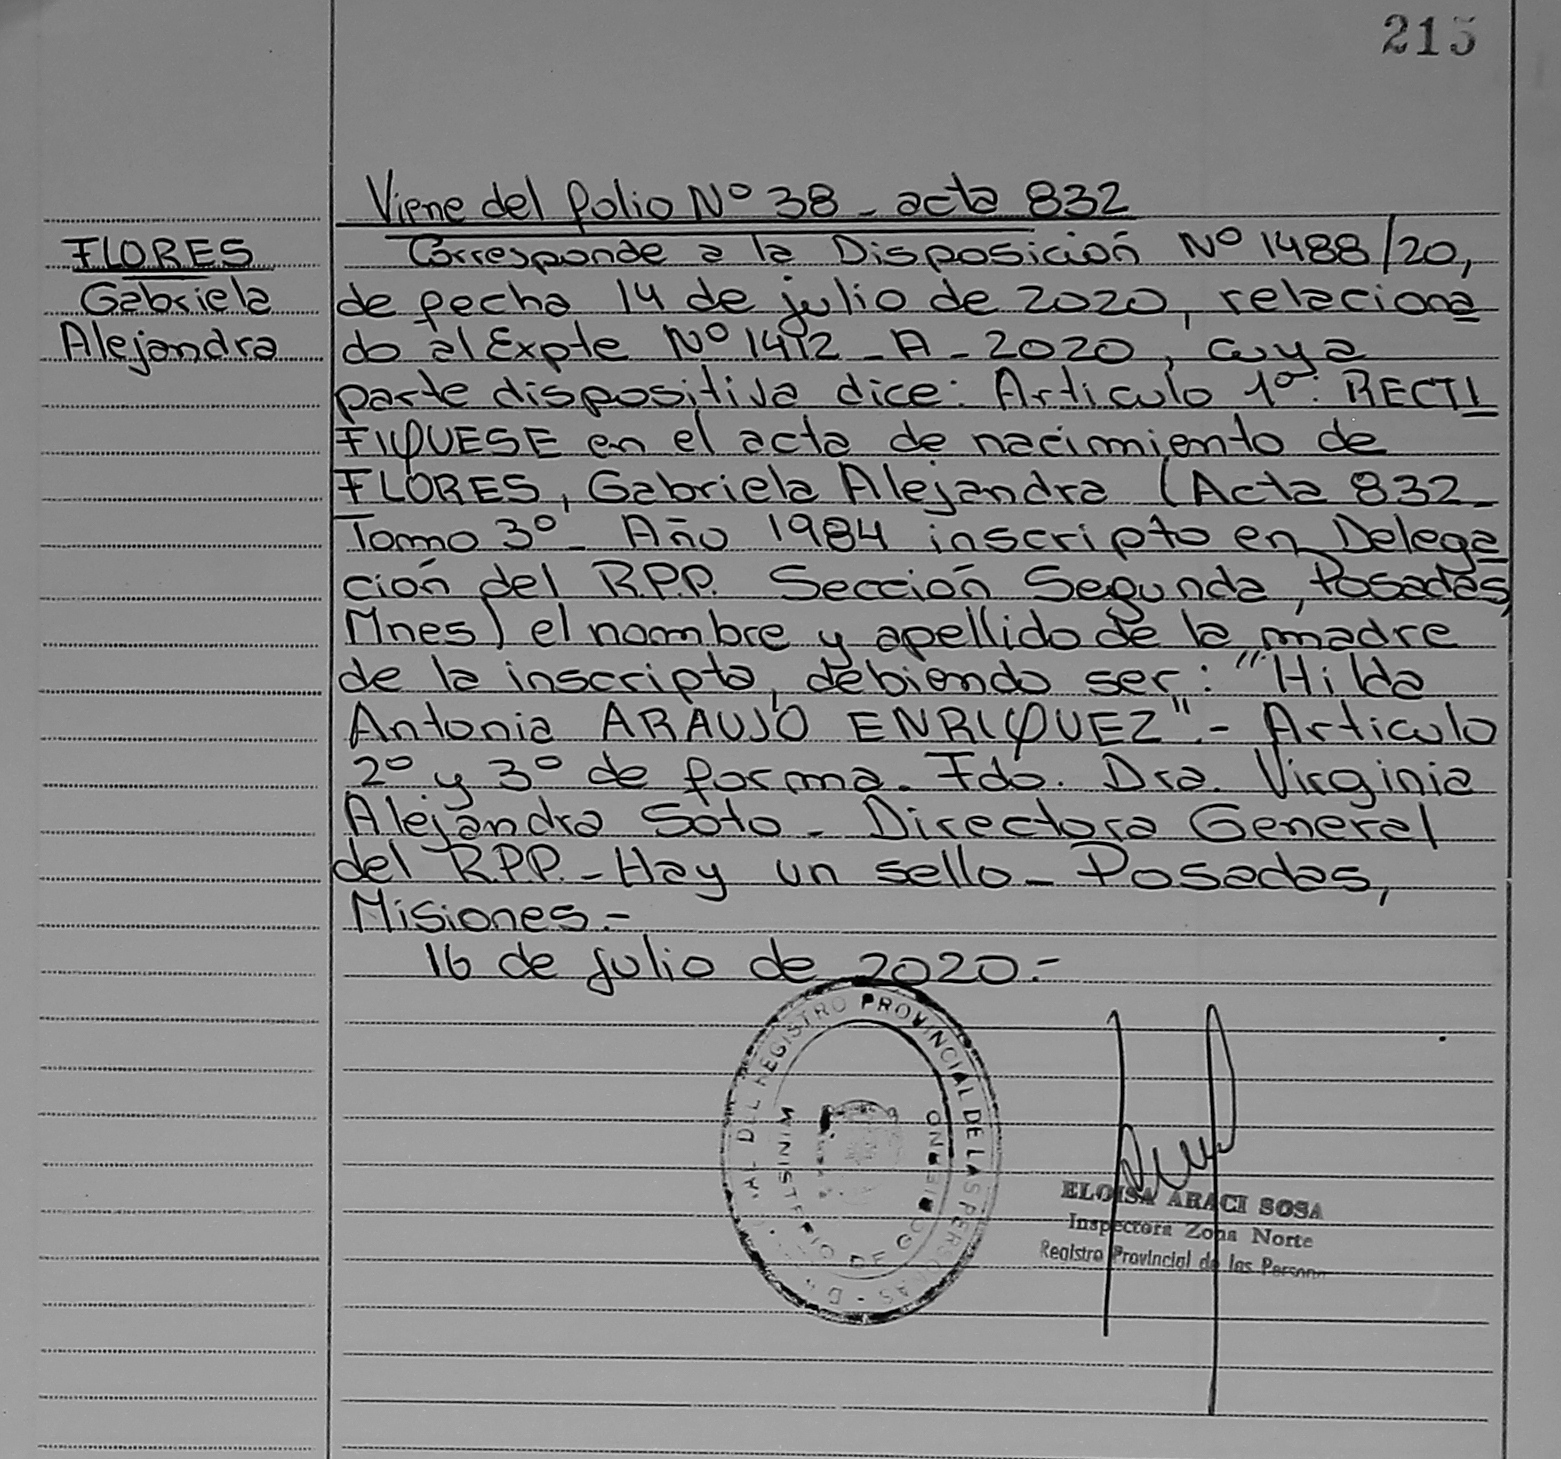 215
Viene del folio Nº 38 - acta 832
FLORES
Gabriela
Alejandra
Corresponde a la Disposición Nº 1488/20,
de fecha 14 de julio de 2020, relaciona
do al Expte Nº 1412 - A - 2020, cuya
parte dispositiva dice: Articulo 1º: RECTI
FIQUESE en el acta de nacimiento de
FLORES, Gabriela Alejandra (Acta 832
Tomo 3º - Año 1984 inscripto en Delega
ción del R.P.P. Sección Segunda, Posadas,
Mnes) el nombre y apellido de la madre
de la inscripta, debiendo ser: "Hilda
Antonia ARAUJO ENRIQUEZ".- Articulo
2º y 3º de forma. Fdo. Dra. Virginia
Alejandra Soto - Directora General
del R.P.P. - Hay un sello - Posadas,
Misiones.-
16 de julio de 2020.-
REGISTRO PROVINCIAL DE LAS PERSONAS
MINISTERIO DE GOBIERNO
ELOISA ARACI SOSA
Inspectora Zona Norte
Registro Provincial de las Personas